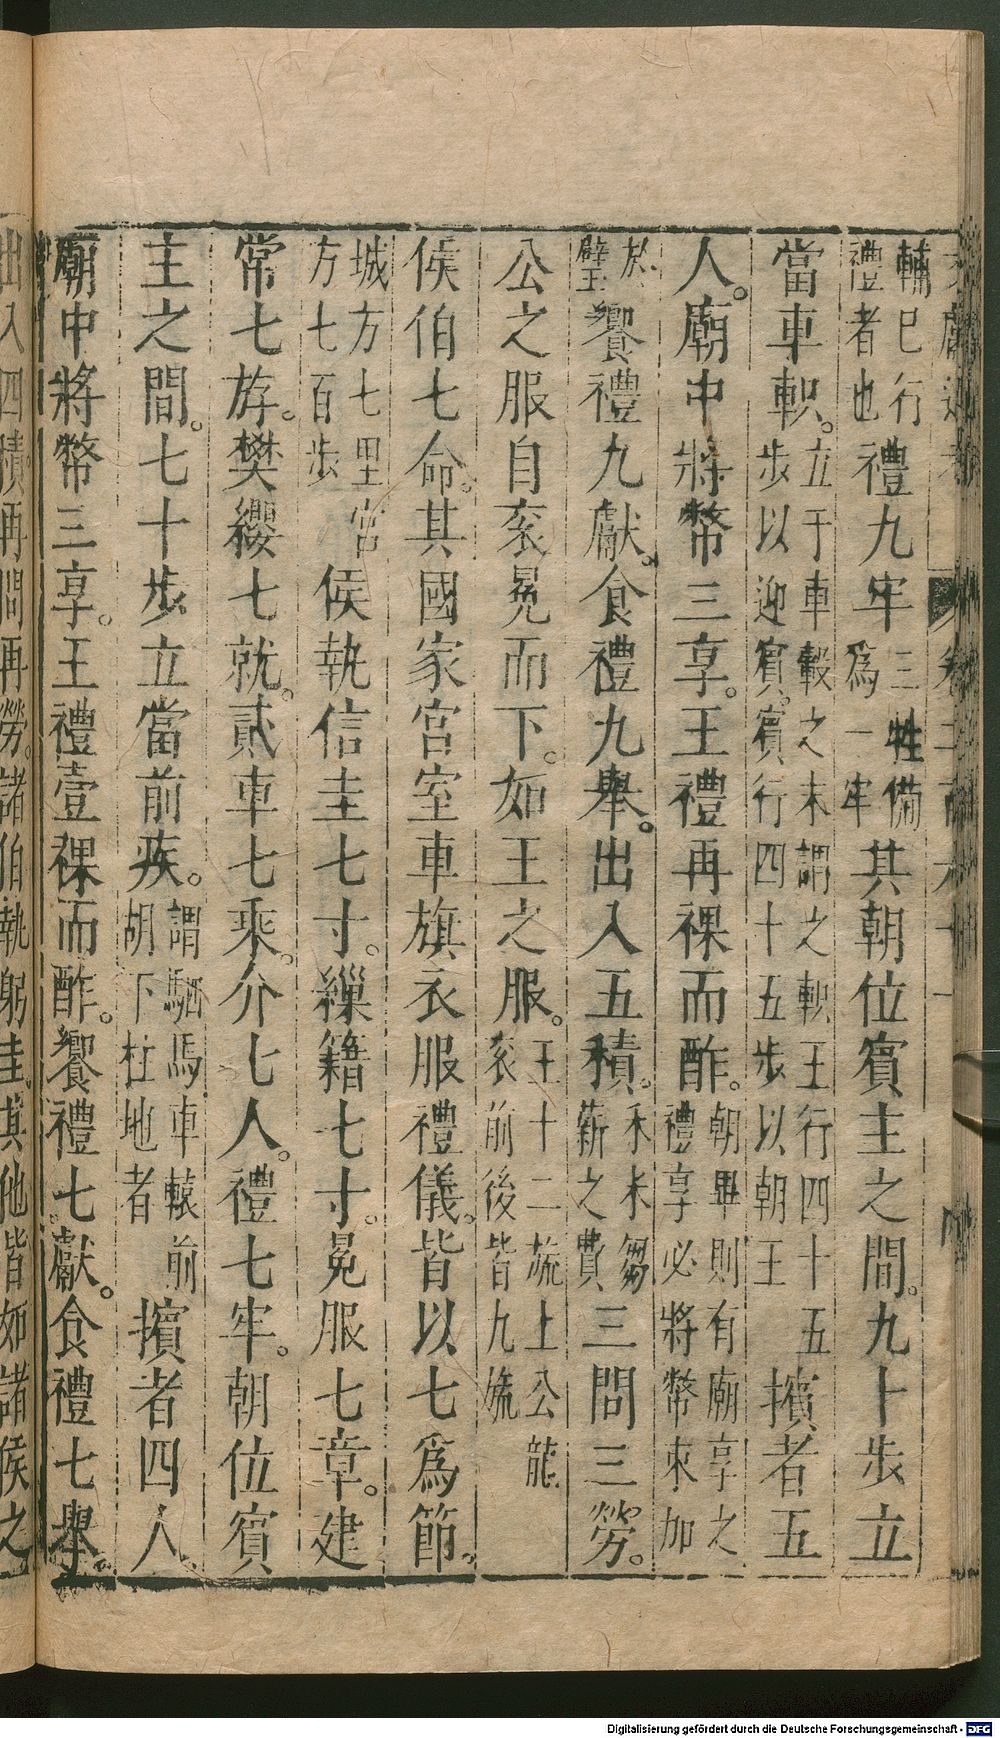 輔已行禮者也禮九牢三牲備爲一牢其朝位賓主之間。九十步立
當車軹。立于車轂之末謂之軹王行四十五步以迎賓。賓行四十五步以朝王擯者五
人。廟中將幣三享。王禮再祼而酢。朝畢則有廟享之禮享必將幣束加
於璧饗禮九獻。食禮九舉。出入五積。禾米芻薪之費三問三勞。
公之服自衮冕而下。如王之服。王十二旒上公龍衮前後皆九旒
侯伯七命。其國家宮室車旗衣服禮儀。皆以七爲節。
城方七里宮方七百步侯執信圭七寸。繅籍七寸。冕服七章。建
常七斿。樊纓七就。貳車七乘。介七人。禮七牢。朝位賓
主之間。七十步立當前疾。謂駟馬車轅前胡下柱地者擯者四人。
廟中將幣三享。王禮壹祼而酢。饗禮七獻。食禮七舉。
出入四積再問再勞。諸伯執躬圭。其他皆如諸侯之
Digitalisierung gefördert durch die Deutsche Forschungsgemeinschaft - DFG